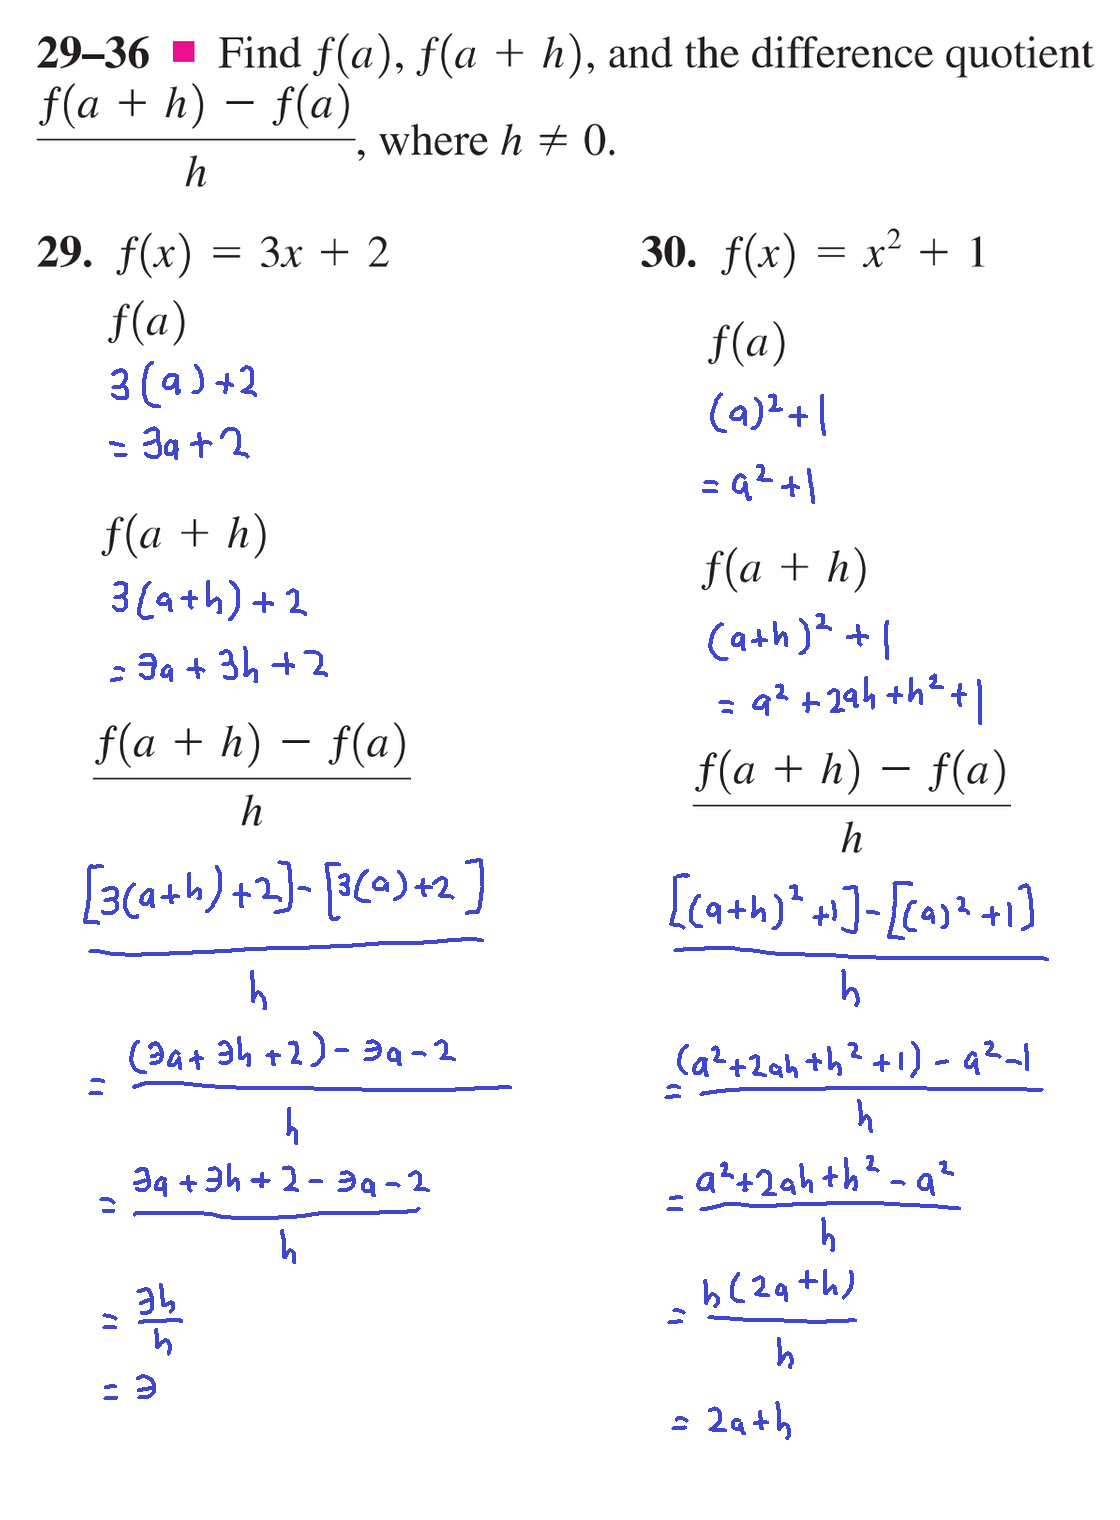 29–36 ■ Find f(a), f(a + h), and the difference quotient
f(a + h) − f(a)
/ h , where h ≠ 0.
29. f(x) = 3x + 2
f(a)
3(a)+2
= 3a+2
f(a + h)
3(a+h)+2
= 3a+3h+2
f(a + h) − f(a)
h
[3(a+h)+2]-[3(a)+2]
h
= (3a+3h+2)-3a-2
h
= 3a+3h+2-3a-2
h
= 3h
h
= 3
30. f(x) = x² + 1
f(a)
(a)²+1
= a²+1
f(a + h)
(a+h)²+1
= a²+2ah+h²+1
f(a + h) − f(a)
h
[(a+h)²+1]-[(a)²+1]
h
= (a²+2ah+h²+1)-a²-1
h
= a²+2ah+h²-a²
h
= h(2a+h)
h
= 2a+h